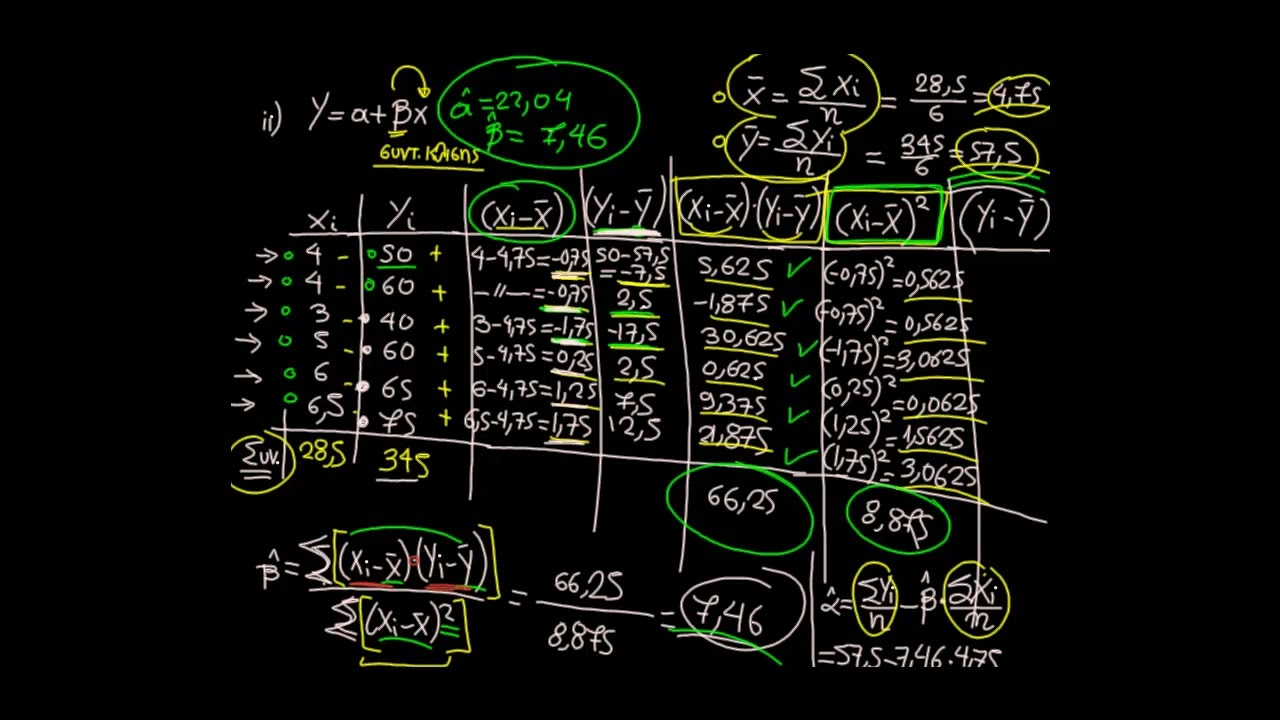 ii) Y = α + βx
συντ. κλίσης
α̂ = 22,04
β̂ = 7,46
x̄ = Σxi/n = 28,5/6 = 4,75
ȳ = Σyi/n = 345/6 = 57,5
xi yi (xi-x̄) (yi-ȳ) (xi-x̄)·(yi-ȳ) (xi-x̄)² (yi-ȳ)
→ 4 - 50 + 4-4,75=-0,75 50-57,5=-7,5 5,625 ✓ (-0,75)²=0,5625
→ 4 - 60 + —〃—=-0,75 2,5 -1,875 ✓ (-0,75)²=0,5625
→ 3 - 40 + 3-4,75=-1,75 -17,5 30,625 ✓ (-1,75)²=3,0625
→ 5 - 60 + 5-4,75=0,25 2,5 0,625 ✓ (0,25)²=0,0625
→ 6 - 65 + 6-4,75=1,25 7,5 9,375 ✓ (1,25)²=1,5625
→ 6,5 - 75 + 6,5-4,75=1,75 12,5 21,875 ✓ (1,75)²=3,0625
Συν. 28,5 345 66,25 8,875
β̂ = Σ[(xi-x̄)·(yi-ȳ)] / Σ[(xi-x̄)²] = 66,25/8,875 = 7,46
α̂ = Σyi/n - β̂·Σxi/n
= 57,5-7,46·4,75